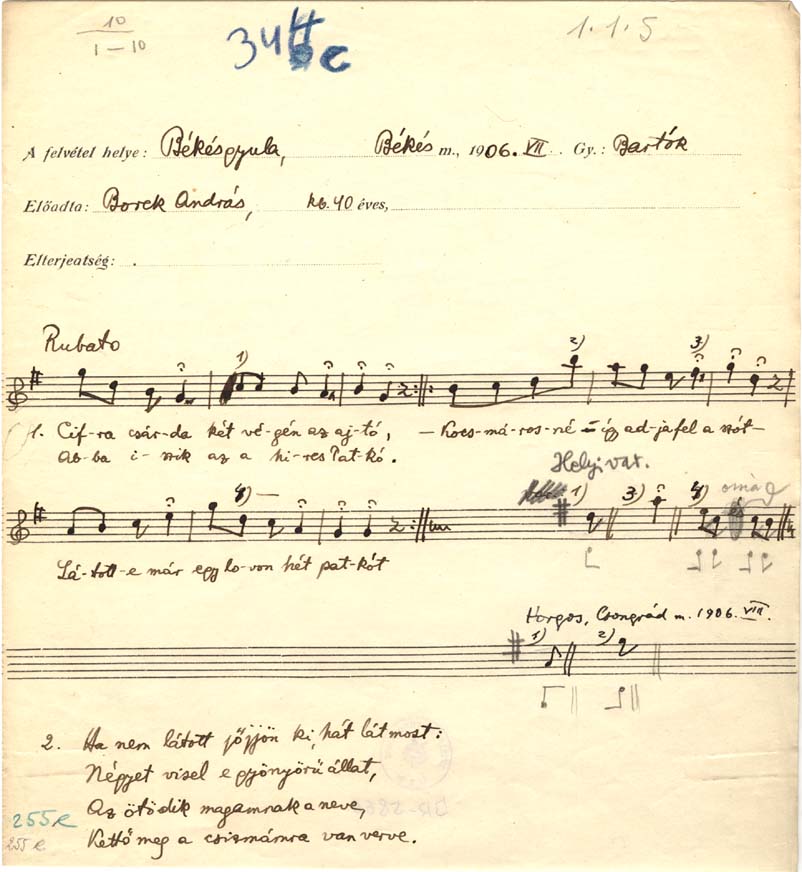 10
1-10
34
c
1.1.5
A felvétel helye: Békésgyula, Békés m., 1906. VII. Gy.: Bartók
Előadta: Borek András, kb. 40 éves,
Elterjeatség: .
Rubato
1) 2) 3)
1. Cif-ra csár-da két vé-gén az aj-tó, – Kocs-má-ros-né – így ad-ja fel a szót –
Ab-ba i-szik az a hi-res Pat-kó.
Helyi var.
4) 1) 3) 4)
Lá-tott-e már egy lo-von hét pat-kót
Horgos, Csongrád m. 1906. VIII.
1) 2)
2. Ha nem látott jőjjön ki, hát lát most:
Négyet visel e gyönyörű állat,
Az ötödik magamnak a neve,
Kettő meg a csizmámra van verve.
255e
255 e